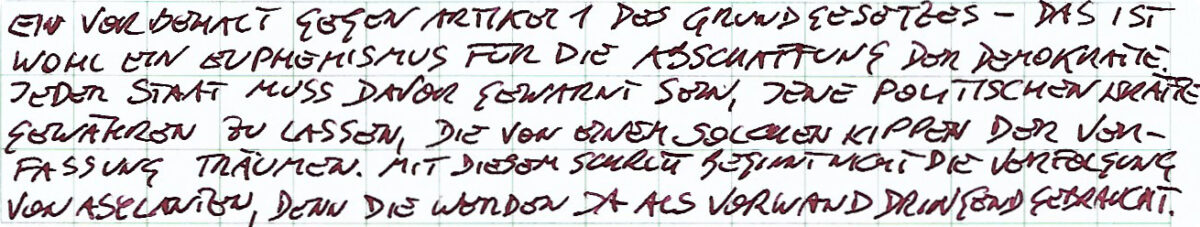 EIN VORBEHALT GEGEN ARTIKEL 1 DES GRUNDGESETZES – DAS IST
WOHL EIN EUPHEMISMUS FÜR DIE ABSCHAFFUNG DER DEMOKRATIE.
JEDER STAAT MUSS DAVOR GEWARNT SEIN, JENE POLITISCHEN KRÄFTE
GEWÄHREN ZU LASSEN, DIE VON EINEM SOLCHEN KIPPEN DER VER-
FASSUNG TRÄUMEN. MIT DIESEM SCHRITT BEGINNT NICHT DIE VERFOLGUNG
VON ASYLANTEN, DENN DIE WERDEN JA ALS VORWAND DRINGEND GEBRAUCHT.